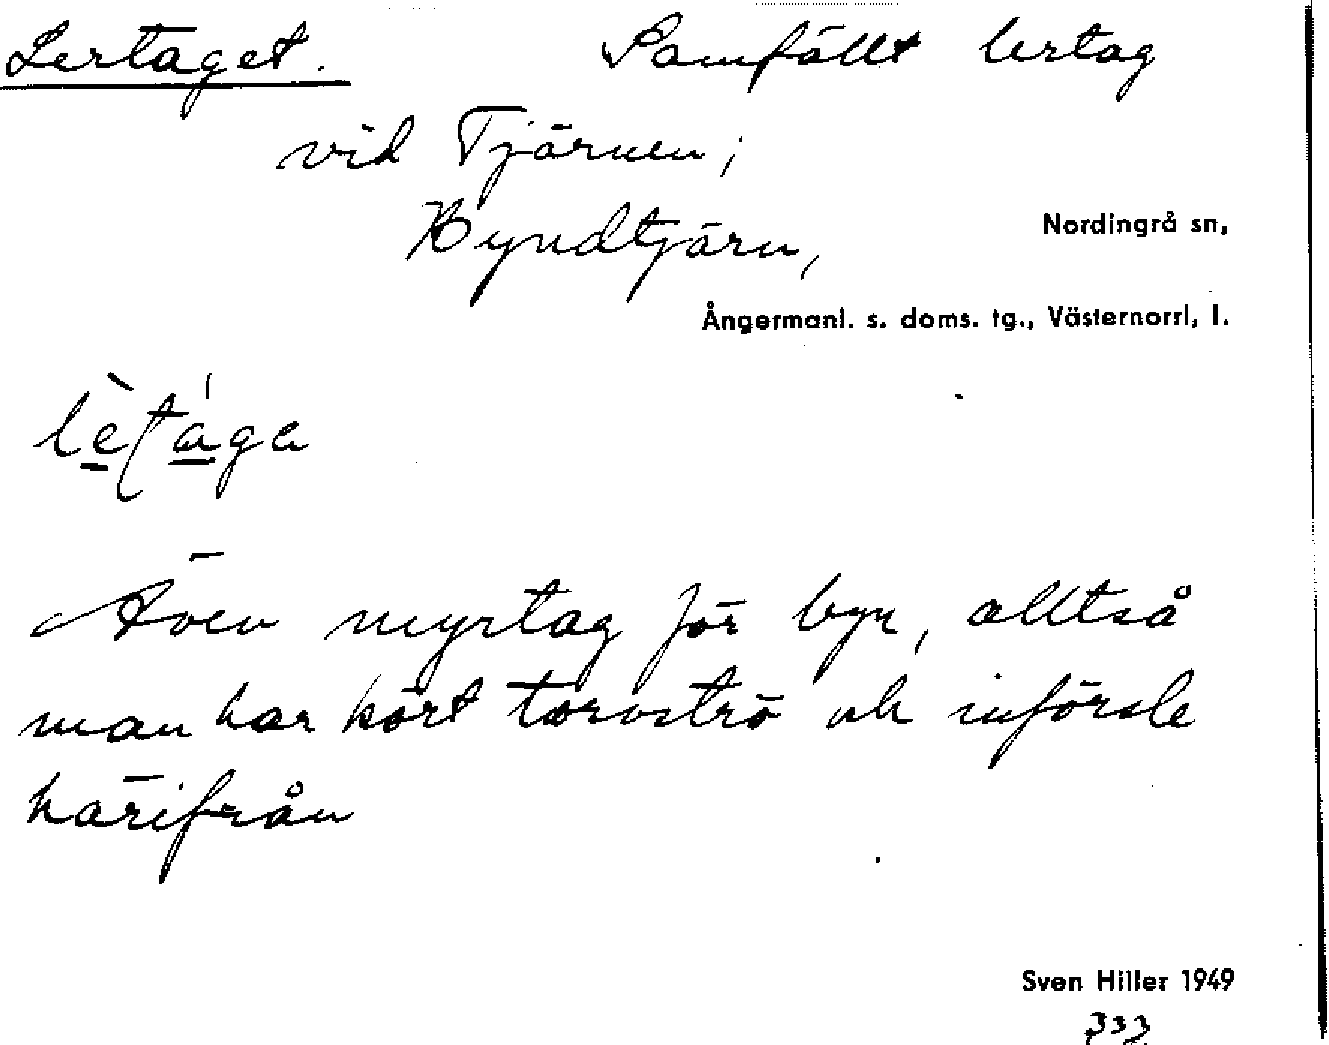 Lertaget. Samfällt lertag
vid Tjärnen;
Byndtjärn,
Nordingrå sn,
Ångermanl. s. doms. tg., Västernorrl, l.
Även myrtag för byn, alltså
man har kört torvströ och införsle
härifrån
Sven Hiller 1949
333